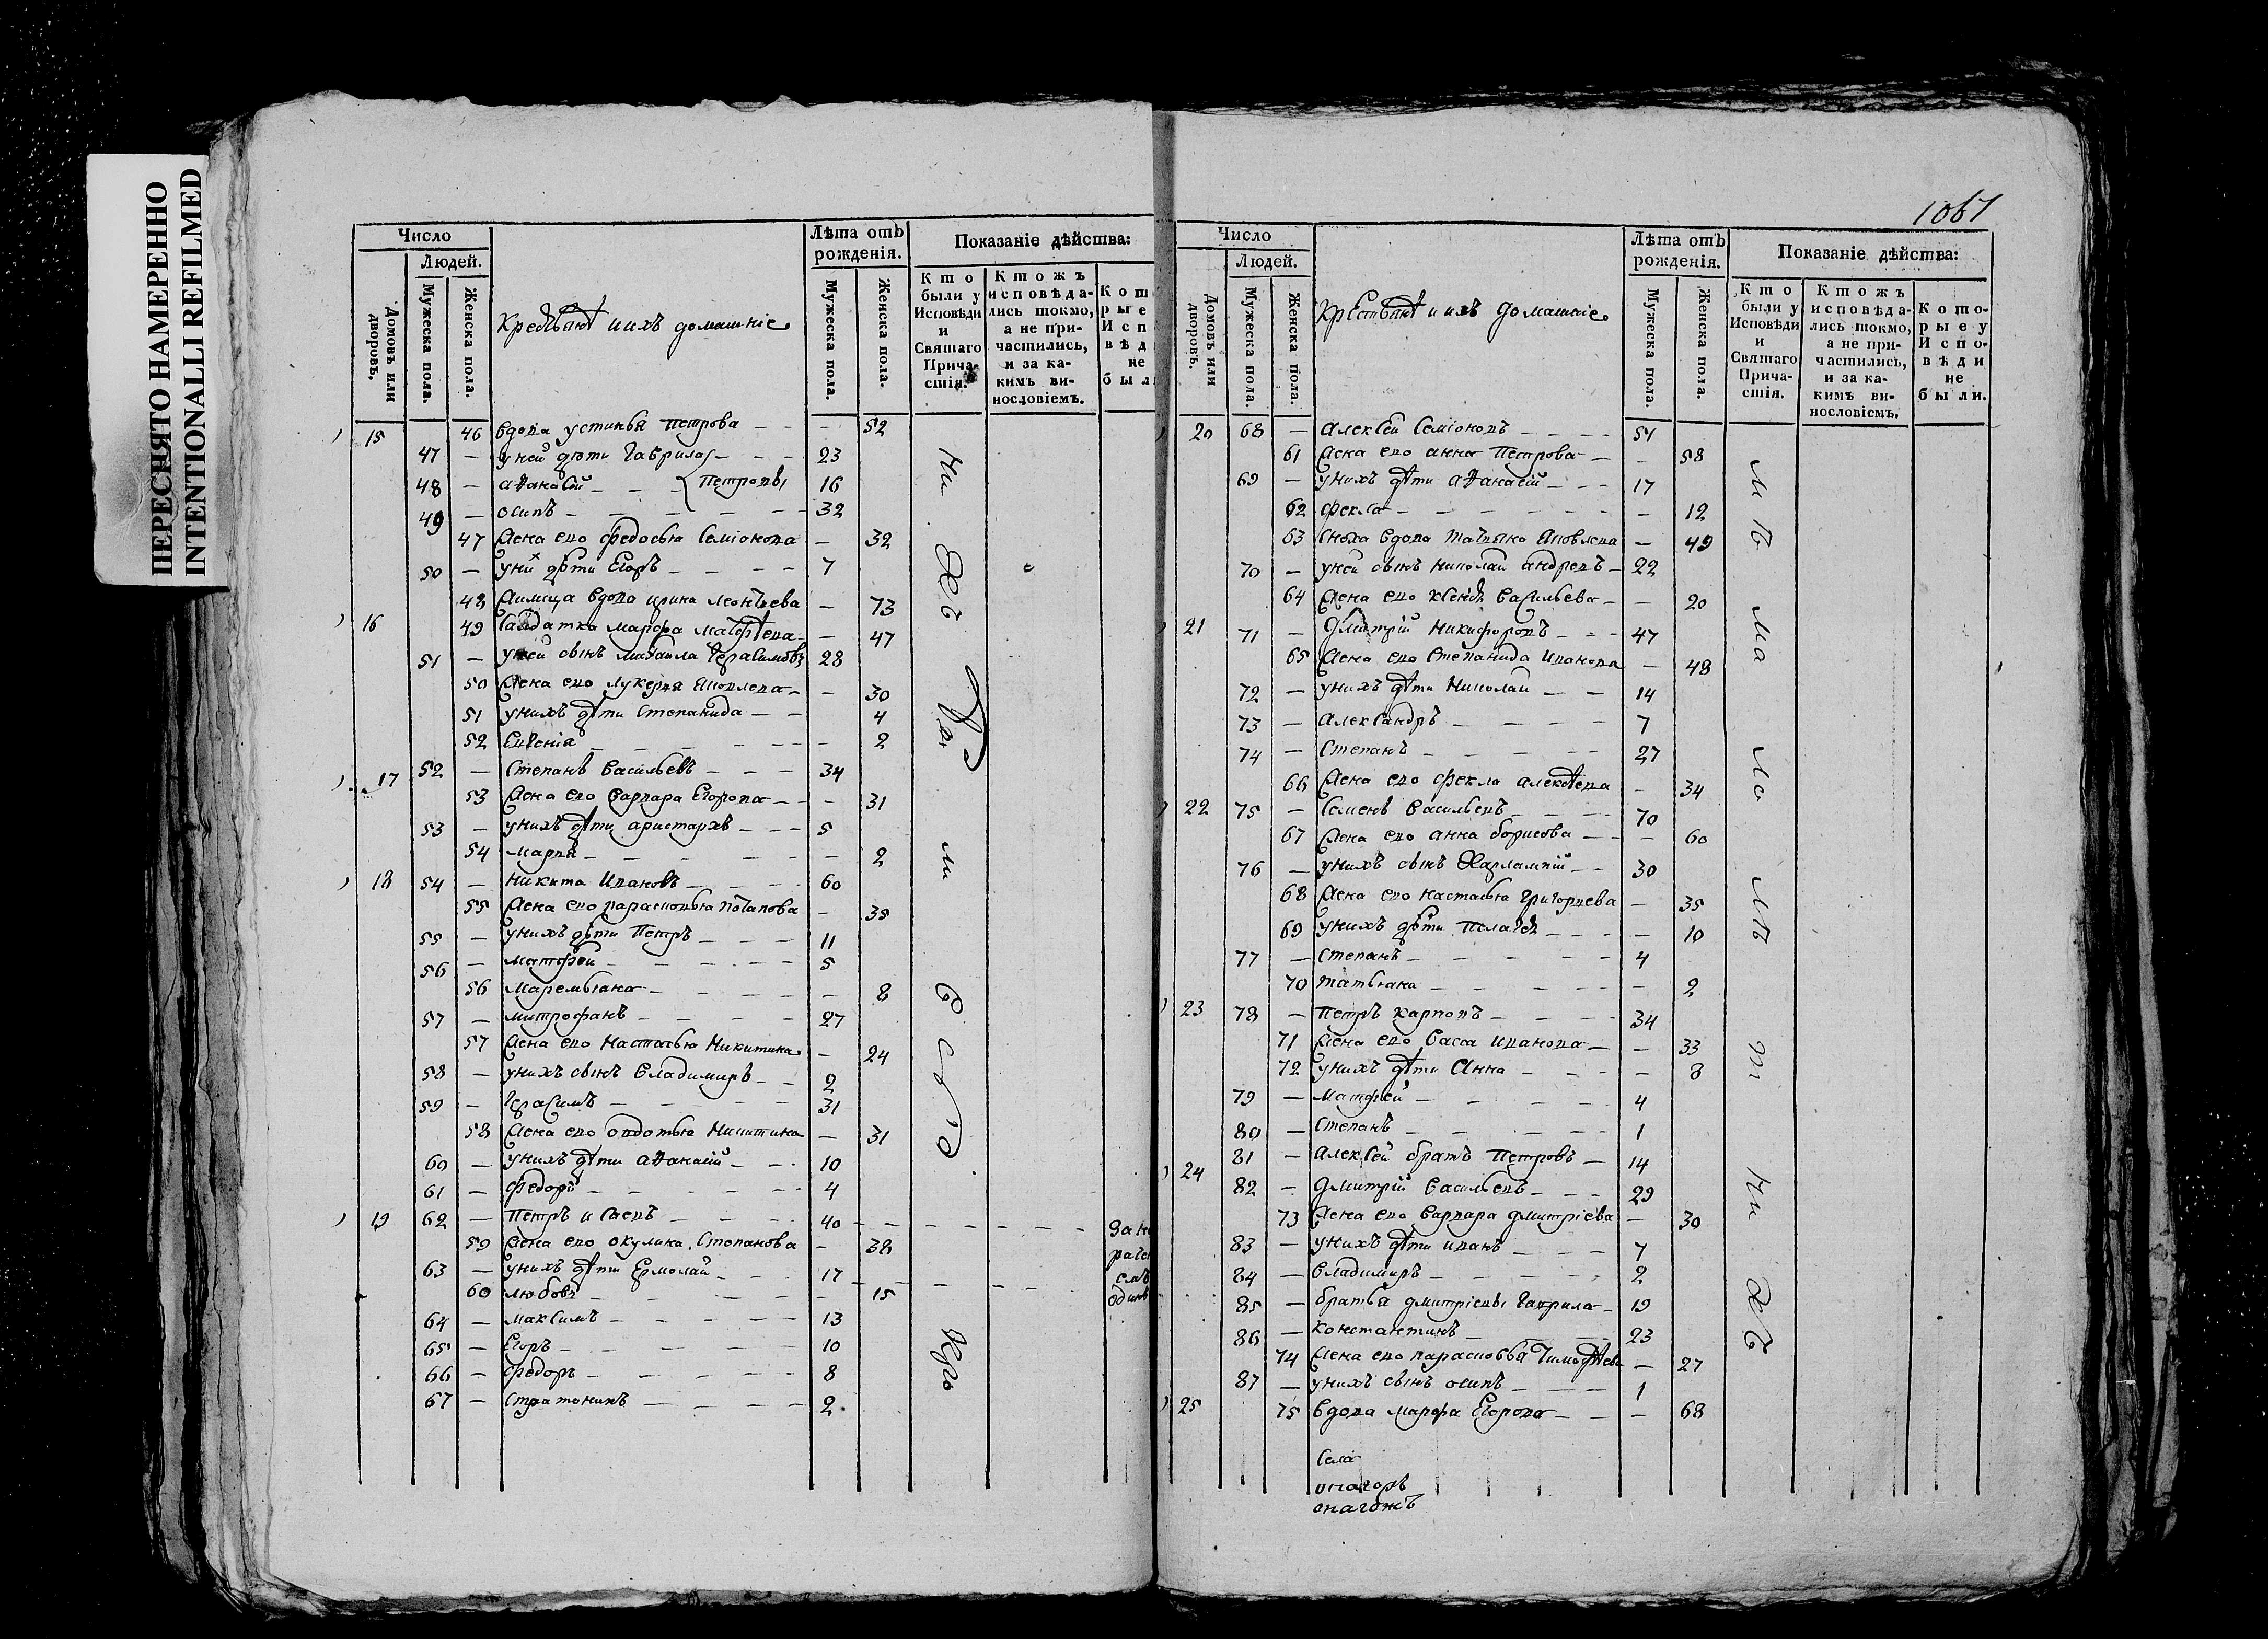 ПЕРЕСНЯТО НАМЕРЕННО
INTENTIONALLI REFILMED
Число
Людей.
Домовъ или дворовъ.
Мужеска пола.
Женска пола.
Лѣта отъ рожденія.
Мужеска пола.
Женска пола.
Показаніе дѣйства:
Кто были у Исповѣди и Святаго Причастія.
Ктожъ исповѣдались токмо, а не причастились, и за какимъ винословіемъ.
ихъ домашніе
15 46 вдова устинья Петрова — — 52
47 — у ней дѣти Гаврила — 23
48 — аѳанасій — Петровы 16
49 — осипъ — 32
47 жена ево федосья Семіонова — 32
50 — у ни дѣти Егоръ — 7
48 вдова ирина леонтьева — 73
16 49 Салдатка марфа — 47
51 — у ней сынъ Герасимовъ 28
50 жена ево лукерья Яковлева — 30
51 у нихъ дѣти Степанида — 4
52 Евгенія — 2
17 52 — Степанъ Васильевъ — 34
53 жена ево варвара Егорова — 31
53 — у нихъ дѣти аристархъ — 5
54 марья — 2
18 54 — никита Ивановъ — 60
55 жена ево парасковья Потапова — 35
55 — у нихъ дѣти Петръ — 11
56 — матфей — 5
56 Маремьяна — 8
57 — митрофанъ — 27
57 жена ево Настасья Никитина — 24
58 — у нихъ сынъ Владимиръ — 2
59 — Герасимъ — 31
58 жена ево овдотья Никитина — 31
60 — у нихъ дѣти аѳанасій — 10
61 — федоръ — 4
19 62 — Петръ Исаевъ — 40
59 жена ево окулина Степанова — 38
63 — у нихъ дѣти Ермолай — 17
60 любовь — 15
64 — максимъ — 13
65 — Егоръ — 10
66 — федоръ — 8
67 — Стратоникъ — 2
1067
Число
Людей.
Домовъ или дворовъ.
Мужеска пола.
Женска пола.
Лѣта отъ рожденія.
Мужеска пола.
Женска пола.
Показаніе дѣйства:
Кто были у Исповѣди и Святаго Причастія.
Ктожъ исповѣдались токмо, а не причастились, и за какимъ винословіемъ.
Которые у Исповѣди не были.
и ихъ домашніе
20 68 — алексѣй Семіоновъ —
61 жена ево анна Петрова — 58
69 — у нихъ дѣти аѳанасій — 17
62 фекла — 12
63 Сноха вдова Татьяна Яковлева — 49
70 — у ней сынъ николай андревъ — 22
64 жена ево Васильева — 20
21 71 — Дмитрій Никифоровъ — 47
65 жена ево Степанида Иванова — 48
72 — у нихъ дѣти Николай — 14
73 — александръ — 7
74 — Степанъ — 27
66 жена ево фекла алексѣева — 34
22 75 — Семенъ Васильевъ — 70
67 жена ево анна борисова — 60
76 — у нихъ сынъ Харлампій — 30
68 жена ево настасья Григорьева — 35
69 у нихъ дѣти — 10
77 — Степанъ — 4
70 татьяна — 2
23 78 — Петръ карповъ — 34
71 жена ево васса иванова — 33
72 у нихъ дѣти Анна — 8
79 — Матфей — 4
80 — Степанъ — 1
81 — алексѣй братъ Петровъ — 14
24 82 — Дмитрій Васильевъ — 29
73 жена ево варвара дмитріева — 30
83 — у нихъ дѣти иванъ — 7
84 — Владимиръ — 2
85 — братья дмитріевы Гаврила — 19
86 — константинъ — 23
74 жена ево парасковья Тимофѣева — 27
87 — у нихъ сынъ осипъ — 1
25 75 вдова марфа Егорова — 68